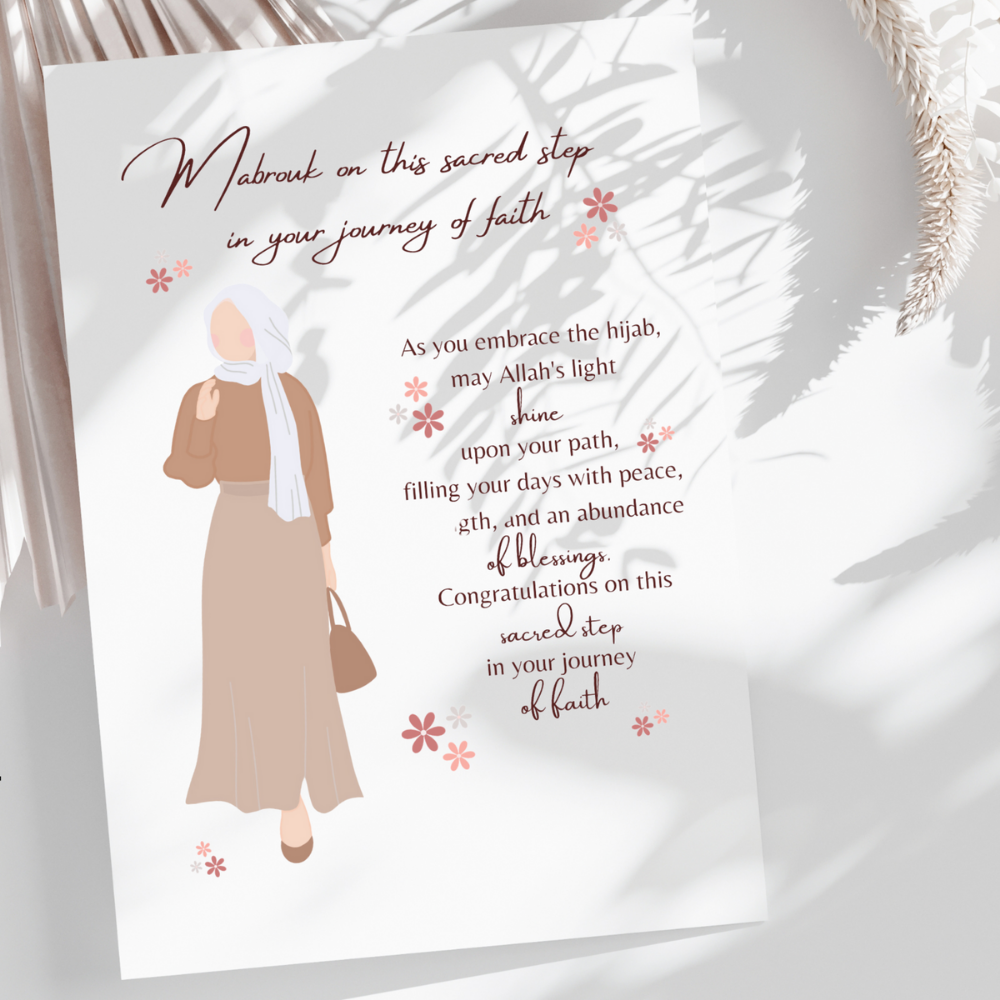 Mabrouk on this sacred step
in your journey of faith
As you embrace the hijab,
may Allah's light
shine
upon your path,
filling your days with peace,
gth, and an abundance
of blessings.
Congratulations on this
sacred step
in your journey
of faith